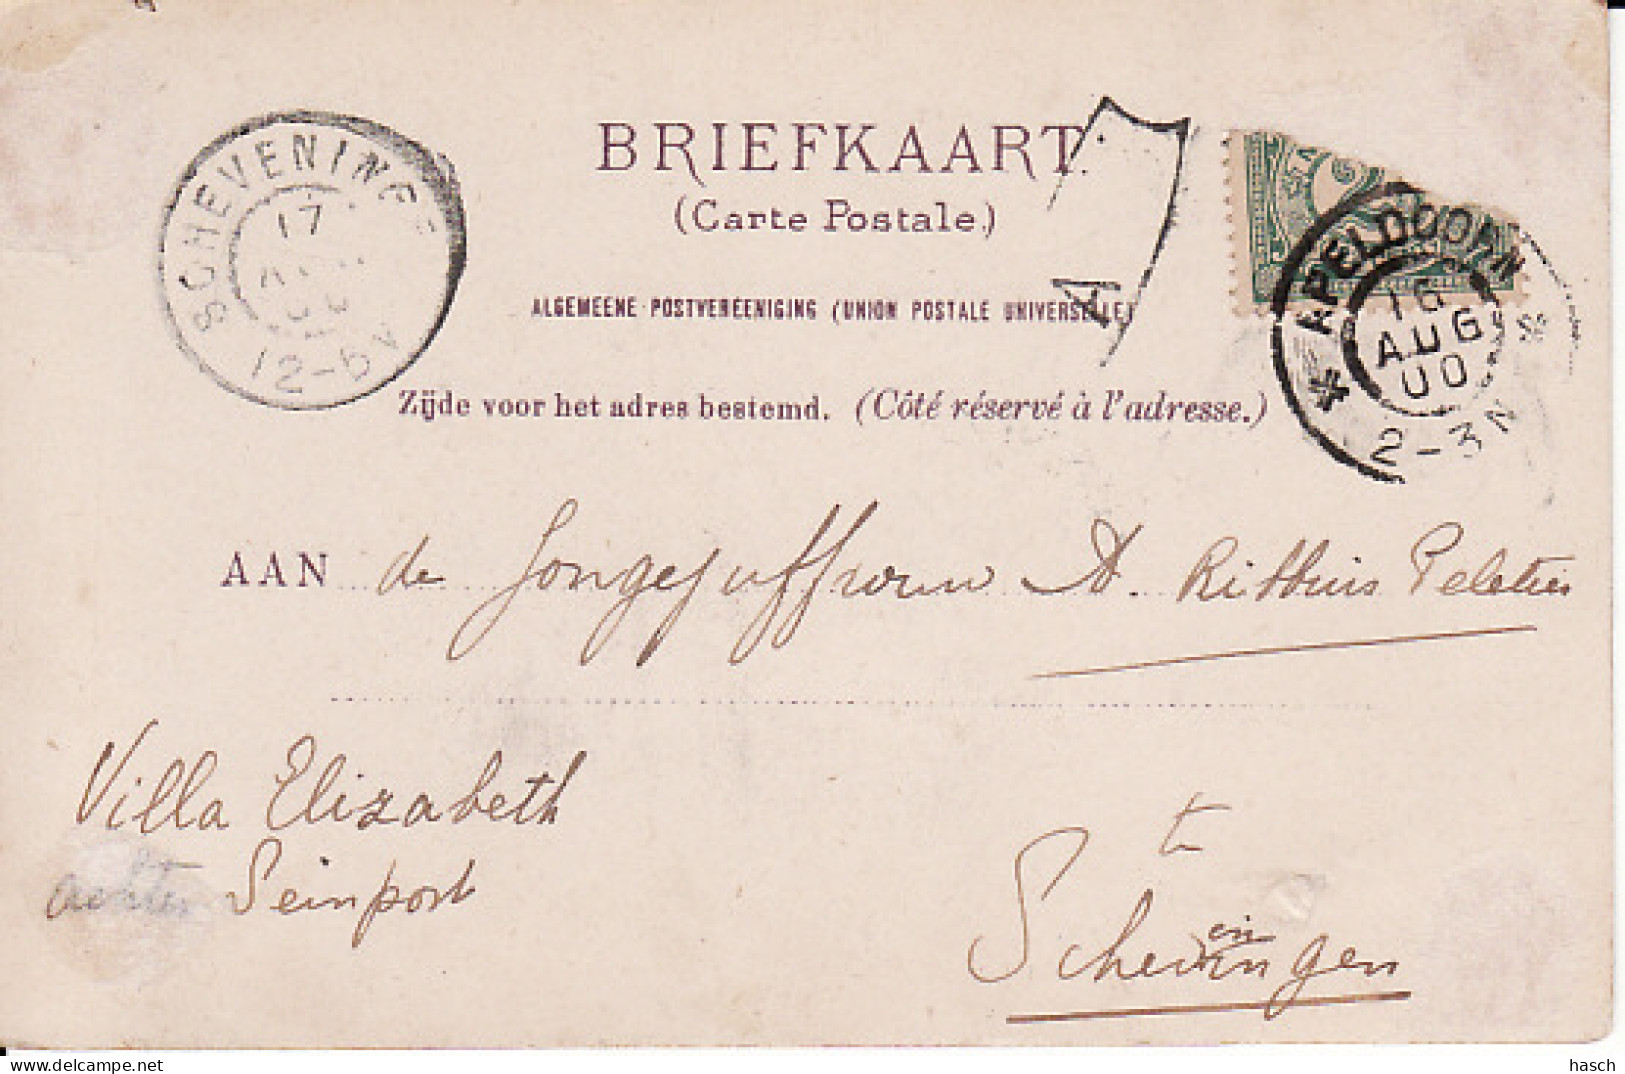 BRIEFKAART.
(Carte Postale.)
ALGEMEENE POSTVEREENIGING (UNION POSTALE UNIVERSELLE)
Zijde voor het adres bestemd. (Côté réservé à l'adresse.)
SCHEVENINGE
17
12-6V
A
APELDOORN
16
AUG
00
2-3N
AAN de Jongejuffrouw A. Ritthuis Peleties
Villa Elizabeth
achter Seinpost
te
Scheveningen
delcampe.net
hasch